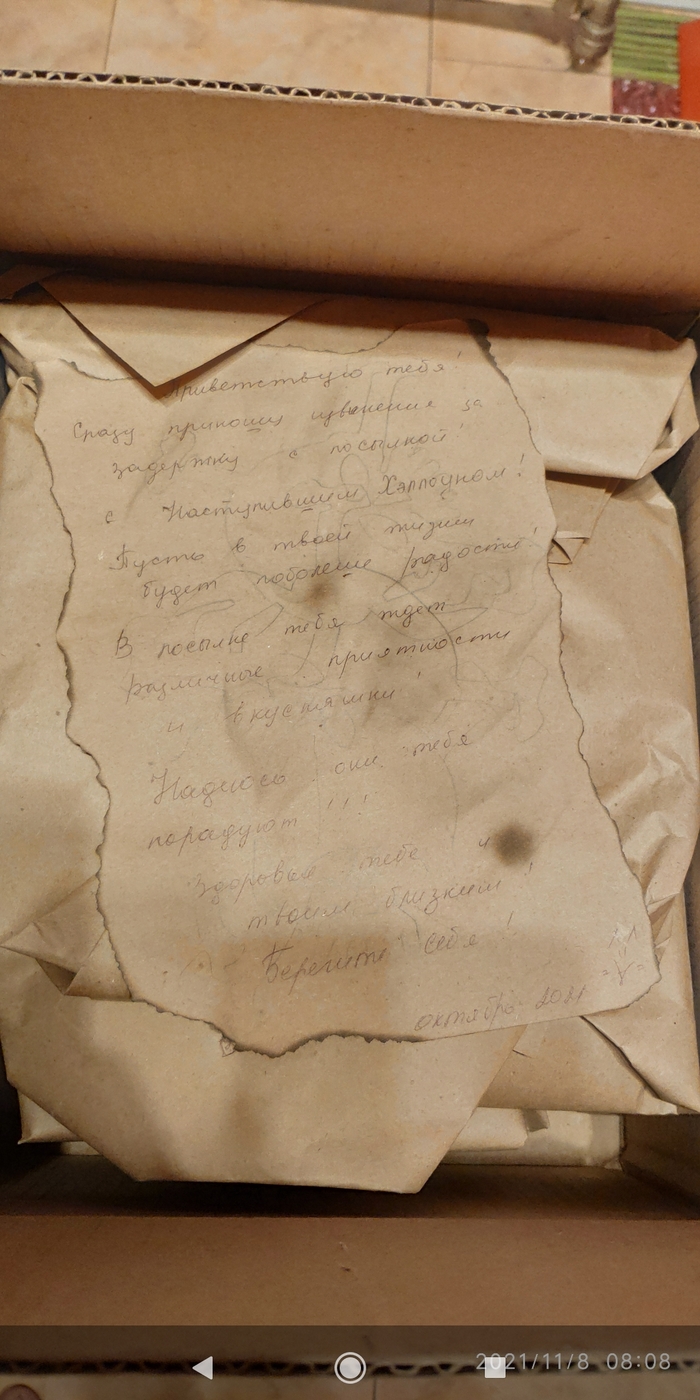 Приветствую тебя!
Сразу приношу извенение за
задержку с посылкой!
с Наступившим Хэллоуном!
Пусть в твоей жизни
будет поболеше радости!
В посылке тебя ждет
различные приятности
и вкустяшки!
Надиюсь они тебя
порадуют!!!
Здоровья тебе и
твоим близким!
Берегите себя!
октябрь 2021
2021/11/8 08:08